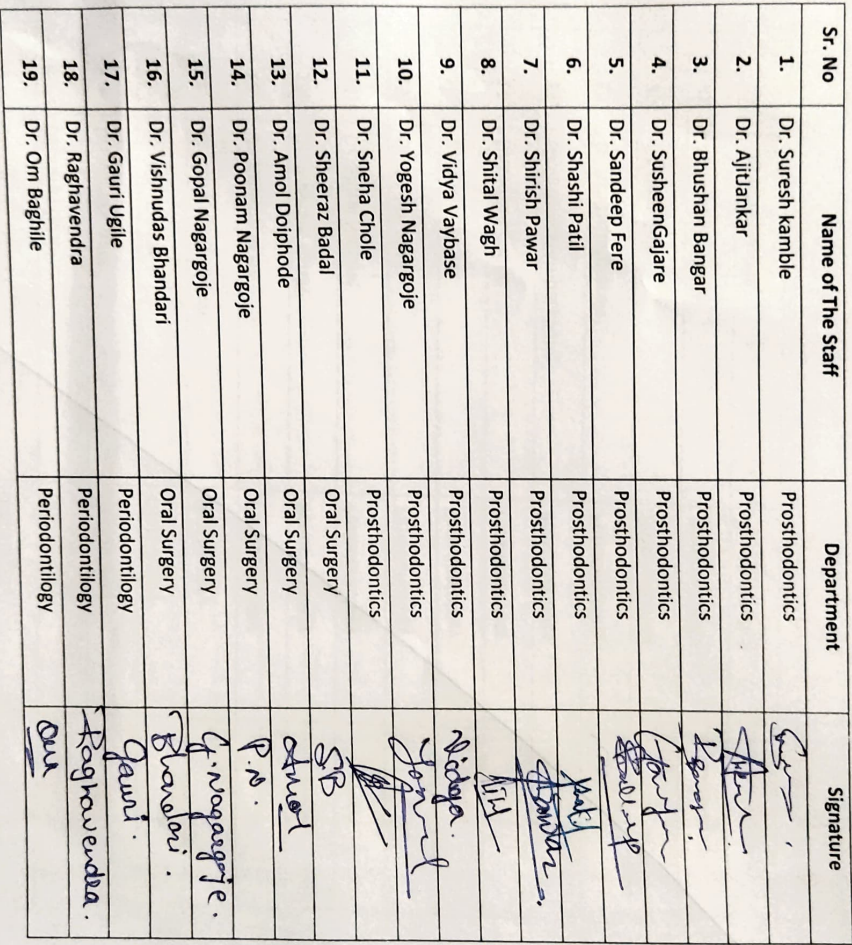 Sr. No Name of The Staff Department Signature
1. Dr. Suresh kamble Prosthodontics
2. Dr. AjitJankar Prosthodontics
3. Dr. Bhushan Bangar Prosthodontics
4. Dr. SusheenGajare Prosthodontics
5. Dr. Sandeep Fere Prosthodontics
6. Dr. Shashi Patil Prosthodontics
7. Dr. Shirish Pawar Prosthodontics
8. Dr. Shital Wagh Prosthodontics
9. Dr. Vidya Vaybase Prosthodontics Vidya.
10. Dr. Yogesh Nagargoje Prosthodontics
11. Dr. Sneha Chole Prosthodontics
12. Dr. Sheeraz Badal Oral Surgery SB
13. Dr. Amol Doiphode Oral Surgery Amol
14. Dr. Poonam Nagargoje Oral Surgery P.N.
15. Dr. Gopal Nagargoje Oral Surgery G.Nagargoje.
16. Dr. Vishnudas Bhandari Oral Surgery Bhandari.
17. Dr. Gauri Ugile Periodontilogy Gauri.
18. Dr. Raghavendra Periodontilogy Raghavendra.
19. Dr. Om Baghile Periodontilogy Om